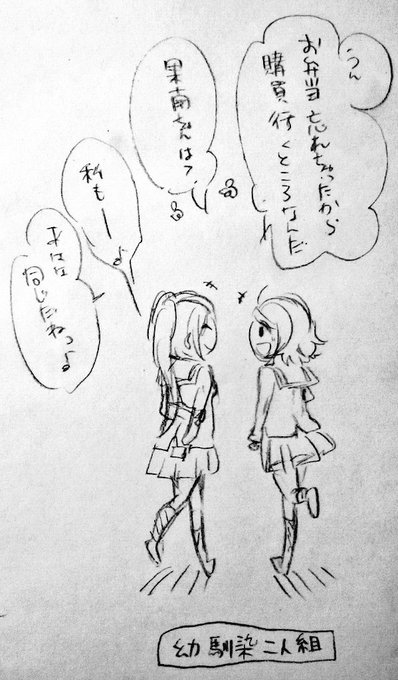 うん
お弁当忘れちゃったから
購買行くところなんだ
果南ちゃんは?
私もー♪
あはは
同じだねっ♪
幼馴染二人組